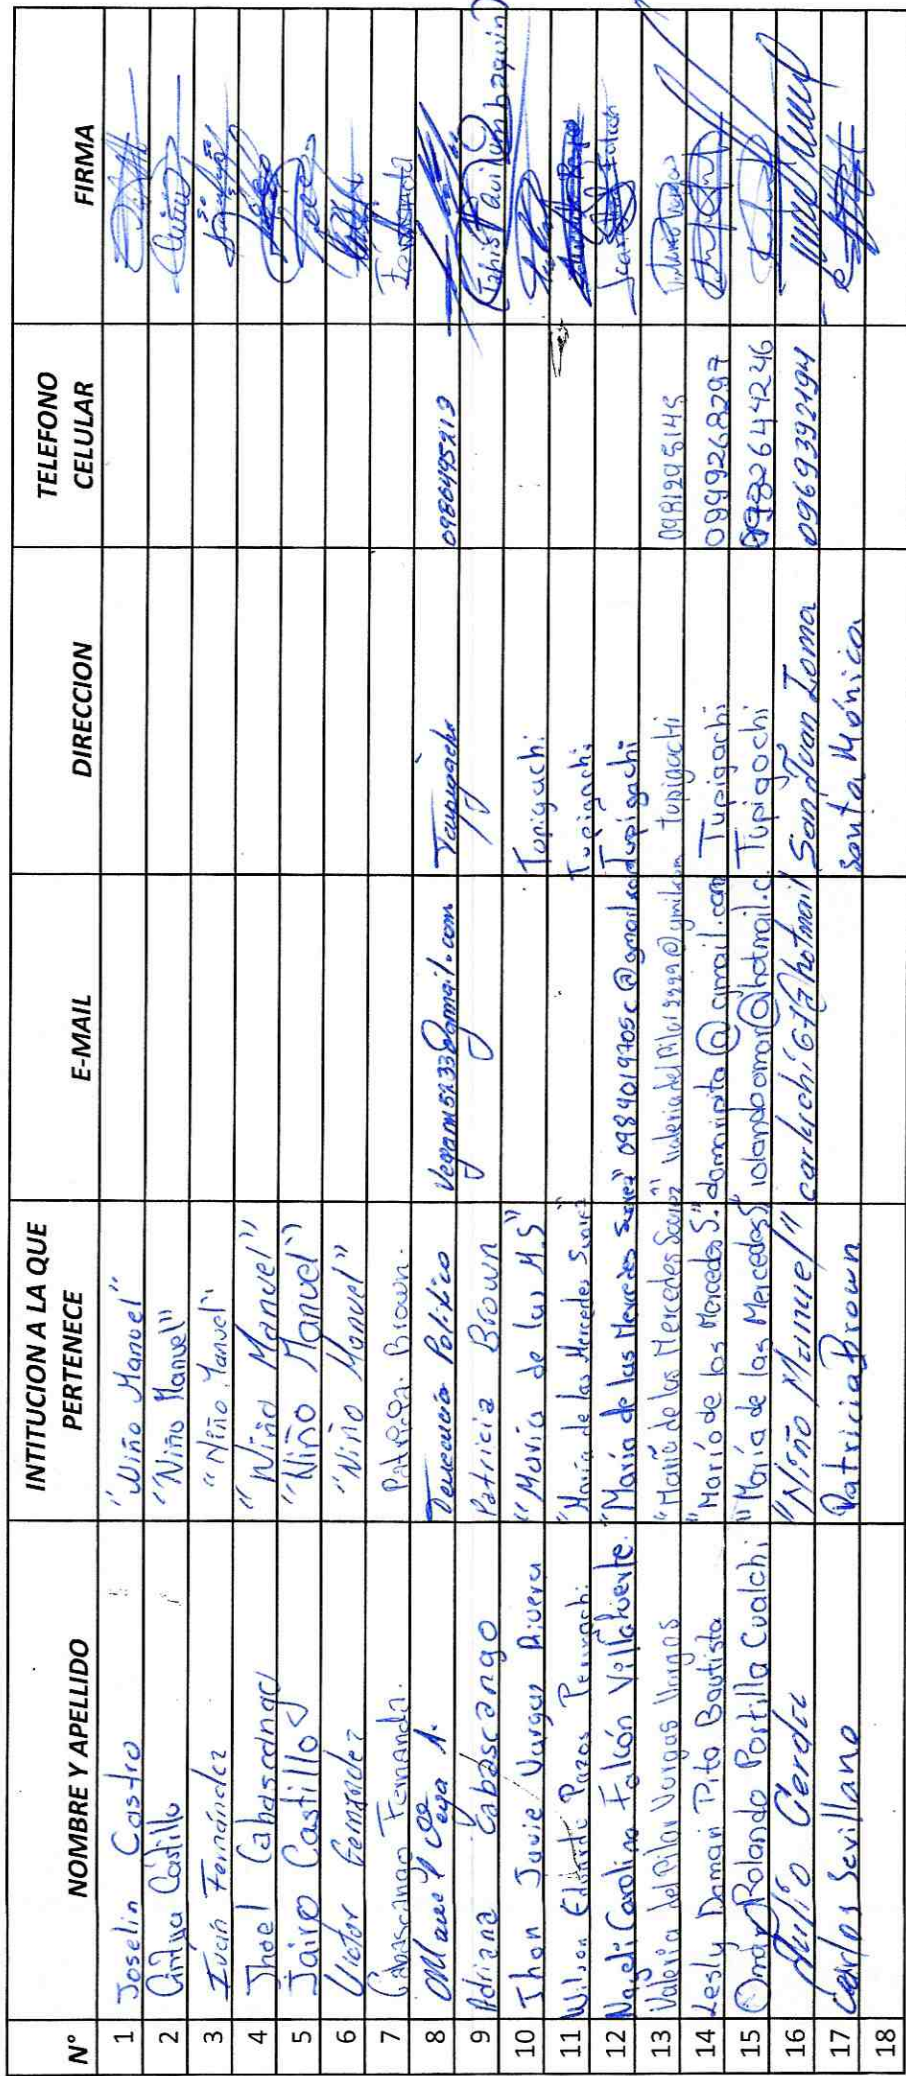 N° NOMBRE Y APELLIDO INTITUCION A LA QUE PERTENECE E-MAIL DIRECCION TELEFONO CELULAR FIRMA
1 Joselin Castro "Niño Manuel"
2 Cintya Castillo "Niño Manuel"
3 Iván Fernández "Niño Manuel"
4 Jhoel Cabascango "Niño Manuel"
5 Jairo Castillo "Niño Manuel"
6 Victor Fernández "Niño Manuel"
7 Cabascango Fernanda. Patricia Brown.
8 Manuel Vega A. Tenencia Politico Tupigachi 0986495213
9 Adriana Cabascango Patricia Brown
10 Jhon Javie Vargas Rivera "María de las M.S" Tupigachi
11 Wilson Eduardo Pazos "María de las Mercedes Suarez Tupigachi
12 Nayeli Carolina Falcón Villafuerte. "María de las Mercedes Suarez" Tupigachi
13 Valeria del Pilar Vargas Vargas "María de las Mercedes Suarez" tupigachi 0981295145
14 Lesly Damari Pita Bautista "María de las Mercedes S." damaripita@gmail.com Tupigachi 0999268297
15 Omar Rolando Portilla Cualchi "María de las Mercedes S" rolandoomar@hotmail.c Tupigachi
16 Julio Cerda "Niño Manuel" San Juan Loma 0969392194
17 Carlos Sevillano Patricia Brown Santa Mónica
18